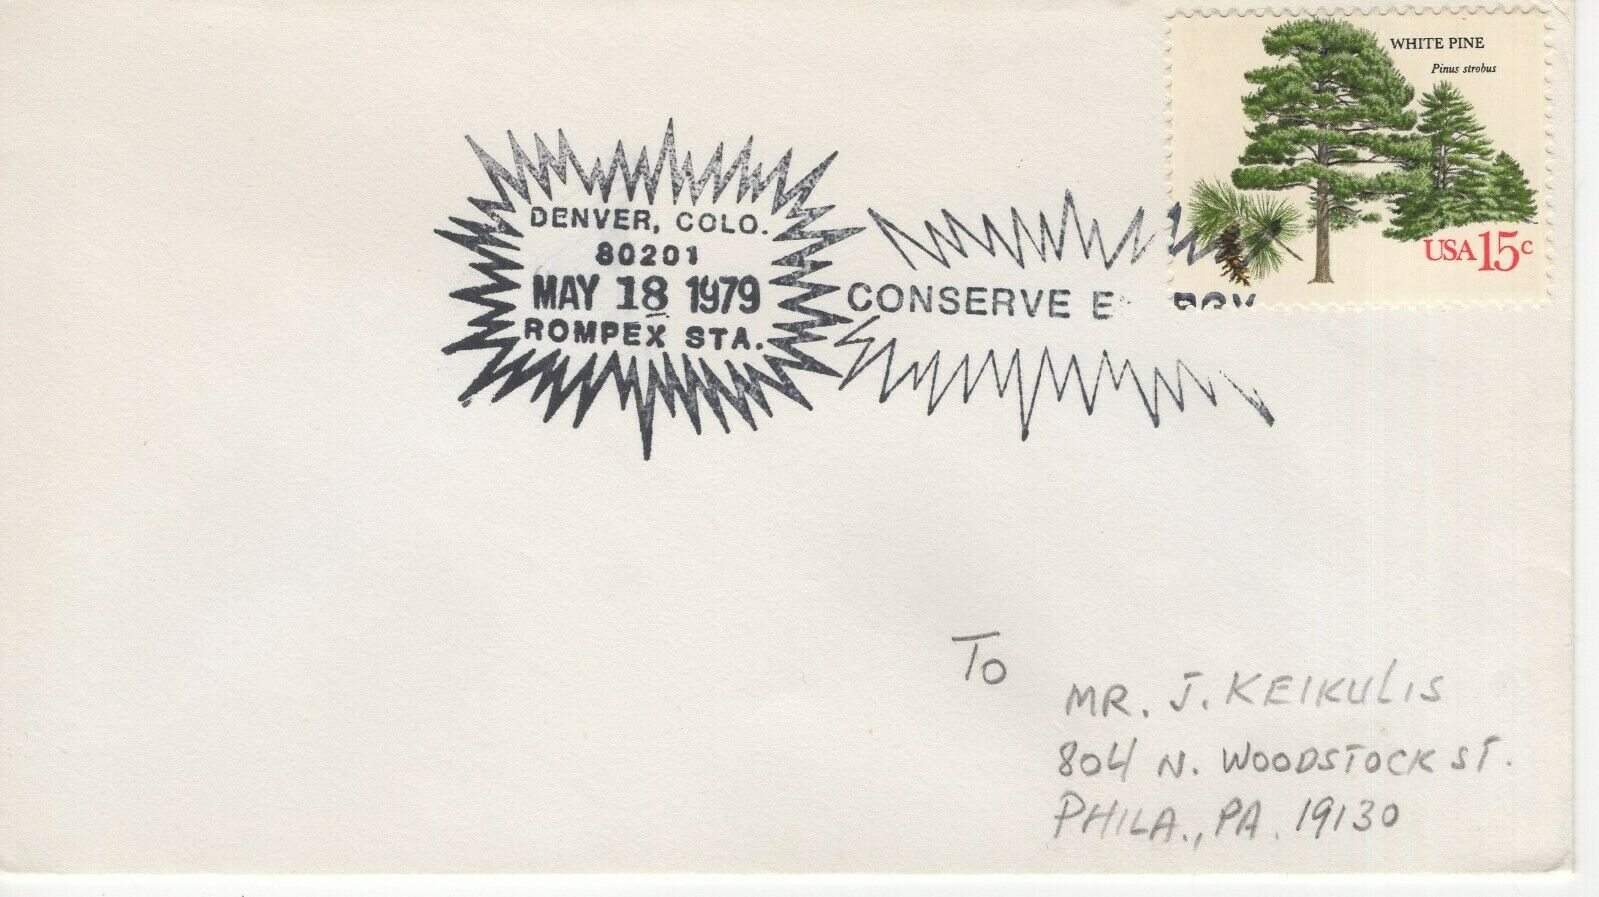 WHITE PINE
Pinus strobus
USA 15c
DENVER, COLO.
80201
MAY 18 1979
ROMPEX STA.
CONSERVE
To
MR. J. KEIKULIS
804 N. WOODSTOCK ST.
PHILA., PA. 19130